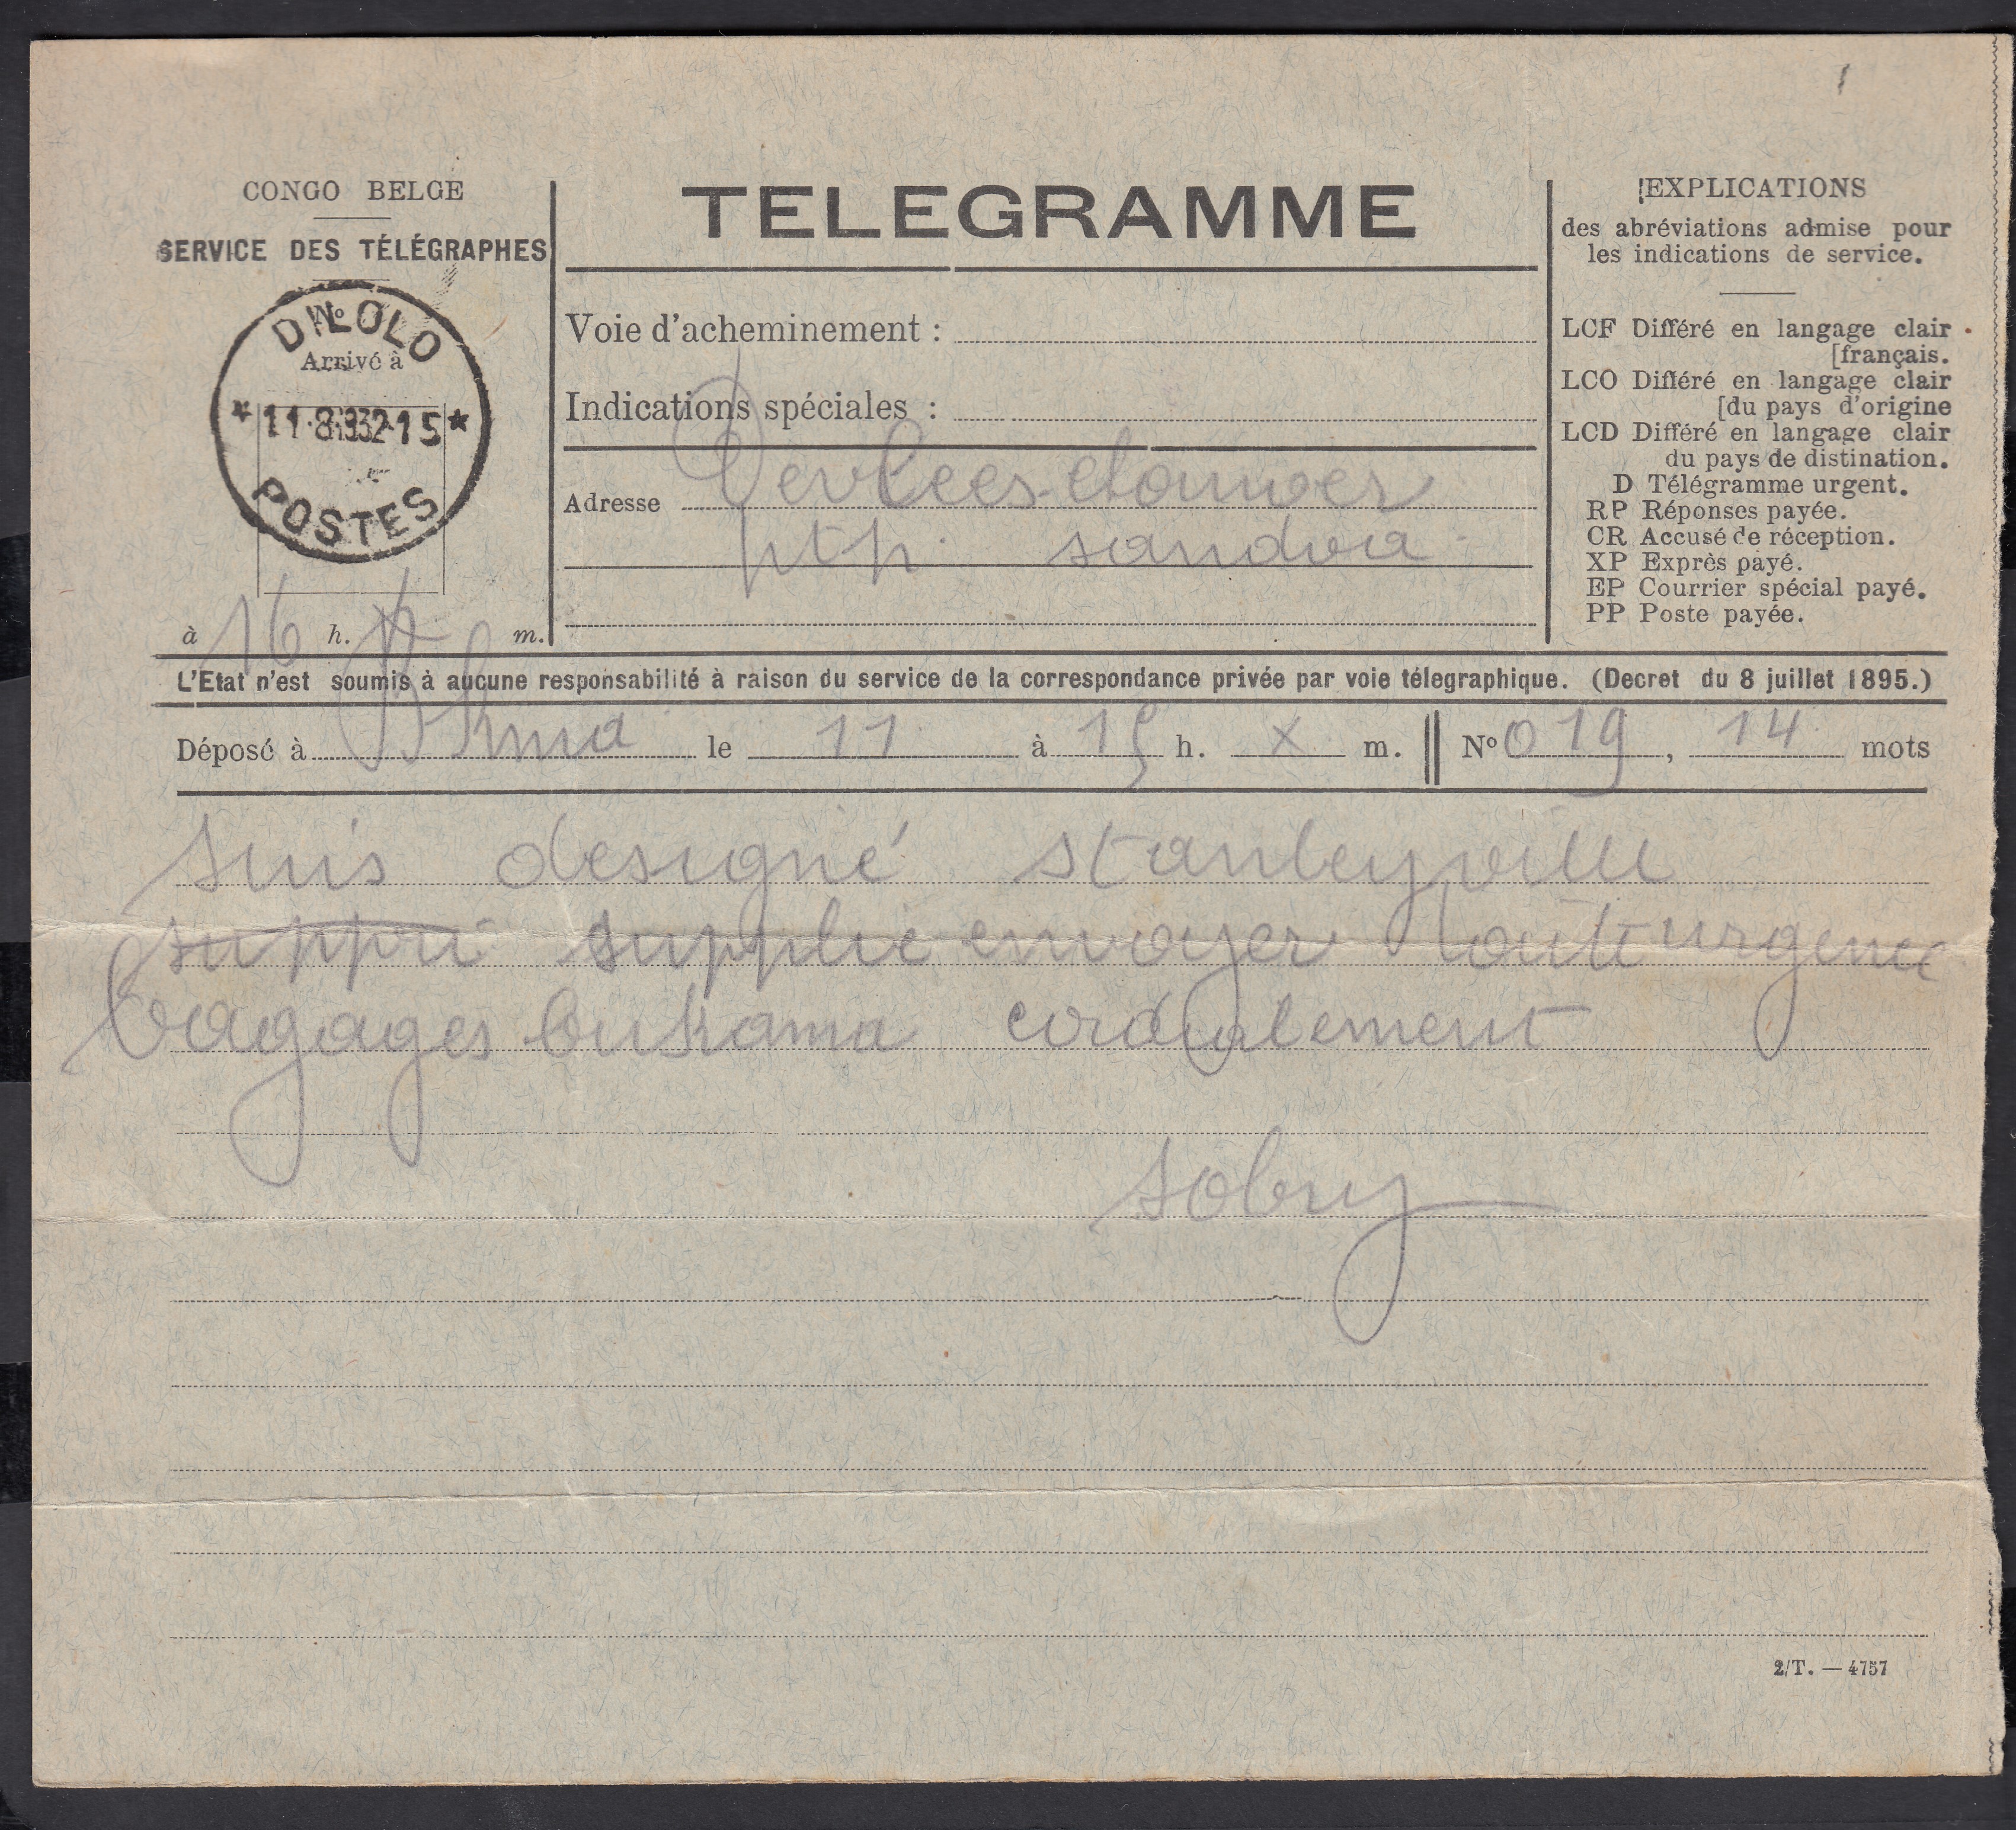 CONGO BELGE
SERVICE DES TÉLÉGRAPHES
No
Arrivé à
DILOLO
*11.8.1932-15*
POSTES
à 16 h. m.
TELEGRAMME
Voie d'acheminement :
Indications spéciales :
Adresse
ptp. sandoa
EXPLICATIONS
des abréviations admise pour
les indications de service.
LCF Différé en langage clair
[français.
LCO Différé en langage clair
[du pays d'origine
LCD Différé en langage clair
du pays de distination.
D Télégramme urgent.
RP Réponses payée.
CR Accusé de réception.
XP Exprès payé.
EP Courrier spécial payé.
PP Poste payée.
L'Etat n'est soumis à aucune responsabilité à raison du service de la correspondance privée par voie télegraphique. (Decret du 8 juillet 1895.)
Déposé à le 11 à 15 h. x m. No 019, 14 mots
suis designé stanleyville
suppri supplie envoyer toute urgence
bagages bukama cordialement
sobry
2/T. — 4757